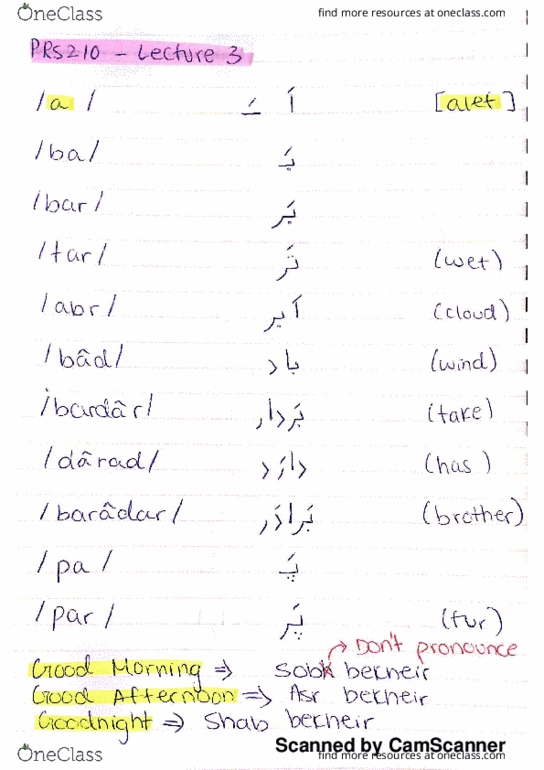 OneClass find more resources at oneclass.com
PRS210 - Lecture 3
/a/ ـَ اَ [alef]
/ba/ بَ
/bar/ بَر
/tar/ تَر (wet)
/abr/ اَبر (cloud)
/bâd/ باد (wind)
/bardâr/ بَردار (take)
/dârad/ دارَد (has)
/barâdar/ بَرادَر (brother)
/pa/ پَ
/par/ پَر (fur)
→ Don't pronounce
Good Morning ⇒ Sobh bekheir
Good Afternoon ⇒ Asr bekheir
Goodnight ⇒ Shab bekheir
Scanned by CamScanner
OneClass find more resources at oneclass.com